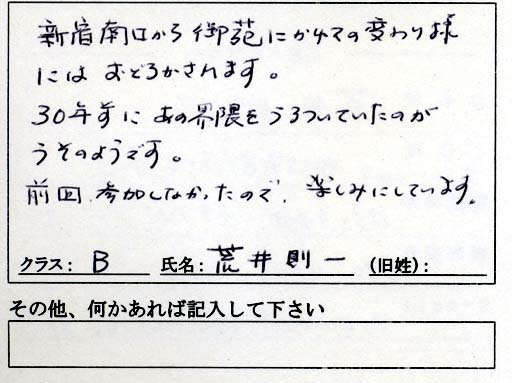 新宿南口から御苑にかけての変わり様
にはおどろかされます。
30年前にあの界隈をうろついていたのが
うそのようです。
前回、参加しなかったので、楽しみにしています。
クラス： B 氏名： 荒井則一 （旧姓）：
その他、何かあれば記入して下さい